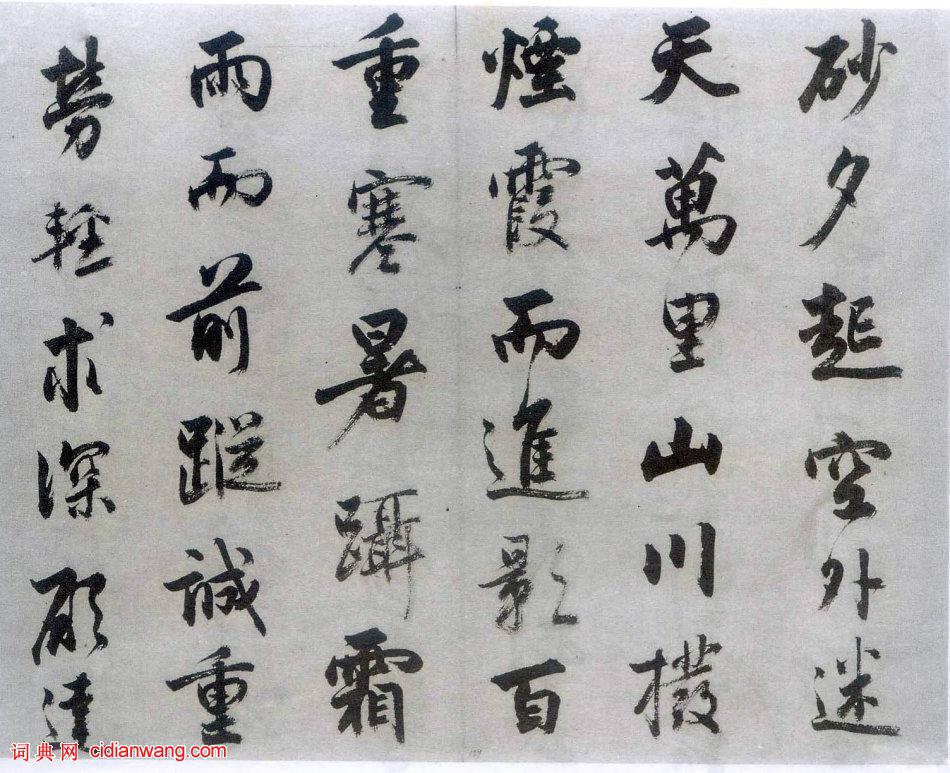 砂夕起空外迷
天萬里山川撥
煙霞而進影百
重寒暑躡霜
雨而前蹤誠重
勞輕求深願達
词典网 cidianwang.com